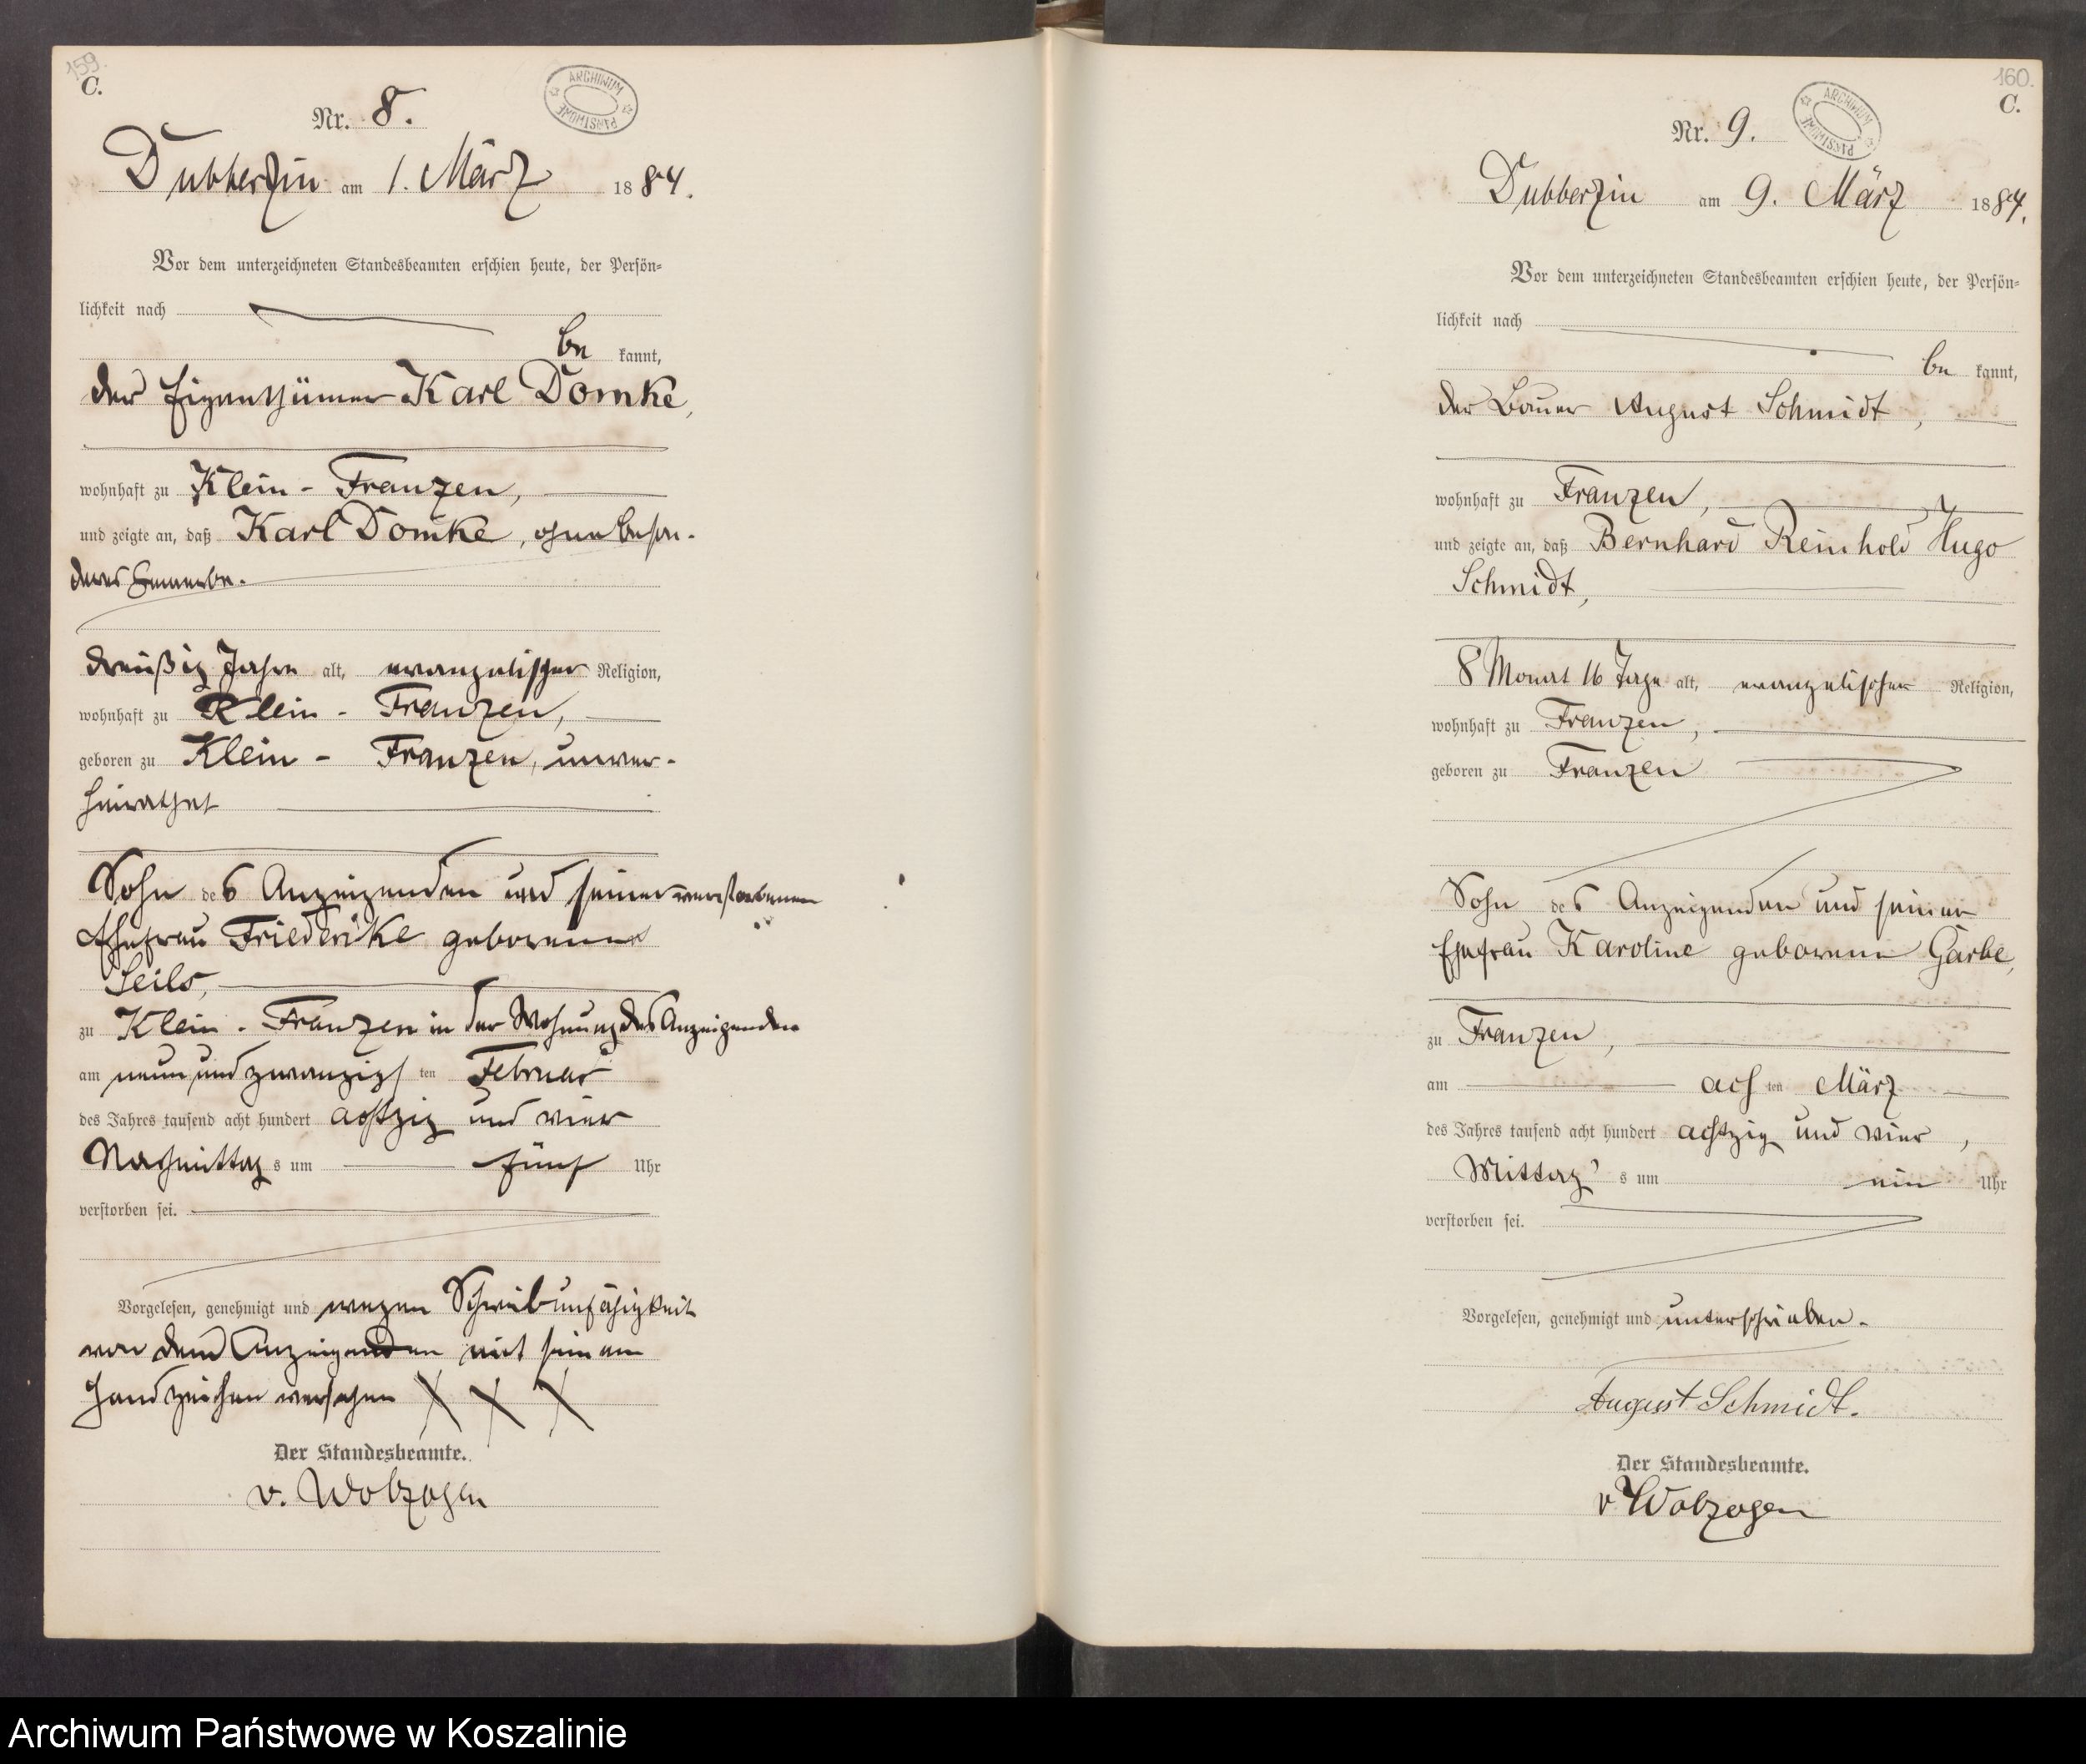 159.
C.
ARCHIWUM PAŃSTWOWE
Nr. 8.
Dubberzin am 1. März 1884.
Vor dem unterzeichneten Standesbeamten erschien heute, der Persön-
lichkeit nach
be kannt,
der Eigenthümer Karl Domke,
wohnhaft zu Klein-Franzen,
und zeigte an, daß Karl Domke, ohne beson-
deres Gewerbe.
dreißig Jahre alt, evangelischer Religion,
wohnhaft zu Klein-Franzen,
geboren zu Klein-Franzen, unver-
heirathet
Sohn des Anzeigenden und seiner verstorbenen
Ehefrau Friederike geborene
Seils,
zu Klein-Franzen in der Wohnung des Anzeigenden
am neun und zwanzigsten Februar
des Jahres tausend acht hundert achtzig und vier
Nachmittags um fünf Uhr
verstorben sei.
Vorgelesen, genehmigt und wegen Schreibunfähigkeit
von dem Anzeigenden mit seinem
Handzeichen versehen X X X
Der Standesbeamte.
v. Wolzogen
160.
C.
ARCHIWUM PAŃSTWOWE
Nr. 9.
Dubberzin am 9. März 1884.
Vor dem unterzeichneten Standesbeamten erschien heute, der Persön-
lichkeit nach
be kannt,
der Bauer August Schmidt,
wohnhaft zu Franzen,
und zeigte an, daß Bernhard Reinhold Hugo
Schmidt,
8 Monat 16 Tage alt, evangelischer Religion,
wohnhaft zu Franzen,
geboren zu Franzen
Sohn des Anzeigenden und seiner
Ehefrau Karoline geborene Garbe,
zu Franzen,
am achten März
des Jahres tausend acht hundert achtzig und vier,
Mittags um ein Uhr
verstorben sei.
Vorgelesen, genehmigt und unterschrieben.
August Schmidt.
Der Standesbeamte.
v Wolzogen
Archiwum Państwowe w Koszalinie